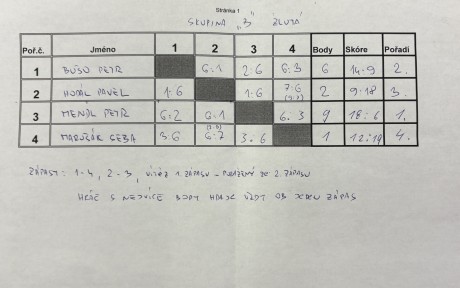 Stránka 1
SKUPINA "3" ŽLUTÁ
Poř.č. Jméno 1 2 3 4 Body Skóre Pořadí
1 PETR 6:1 2:6 6:3 6 14:9 2.
2 PAVEL 1:6 1:6 7:6 2 9:18 3.
3 PETR 6:2 6:1 6:3 9 18:6 1.
4 3:6 6:7 3:6 1 4.
ZÁPASY: 1-4, 2-3, VÍTĚZ 1. ZÁPASU - PORAŽENÝ ZE 2. ZÁPASU
HRÁČ S NEJVÍCE BODY HRAJE VŽDY OB JEDEN ZÁPAS